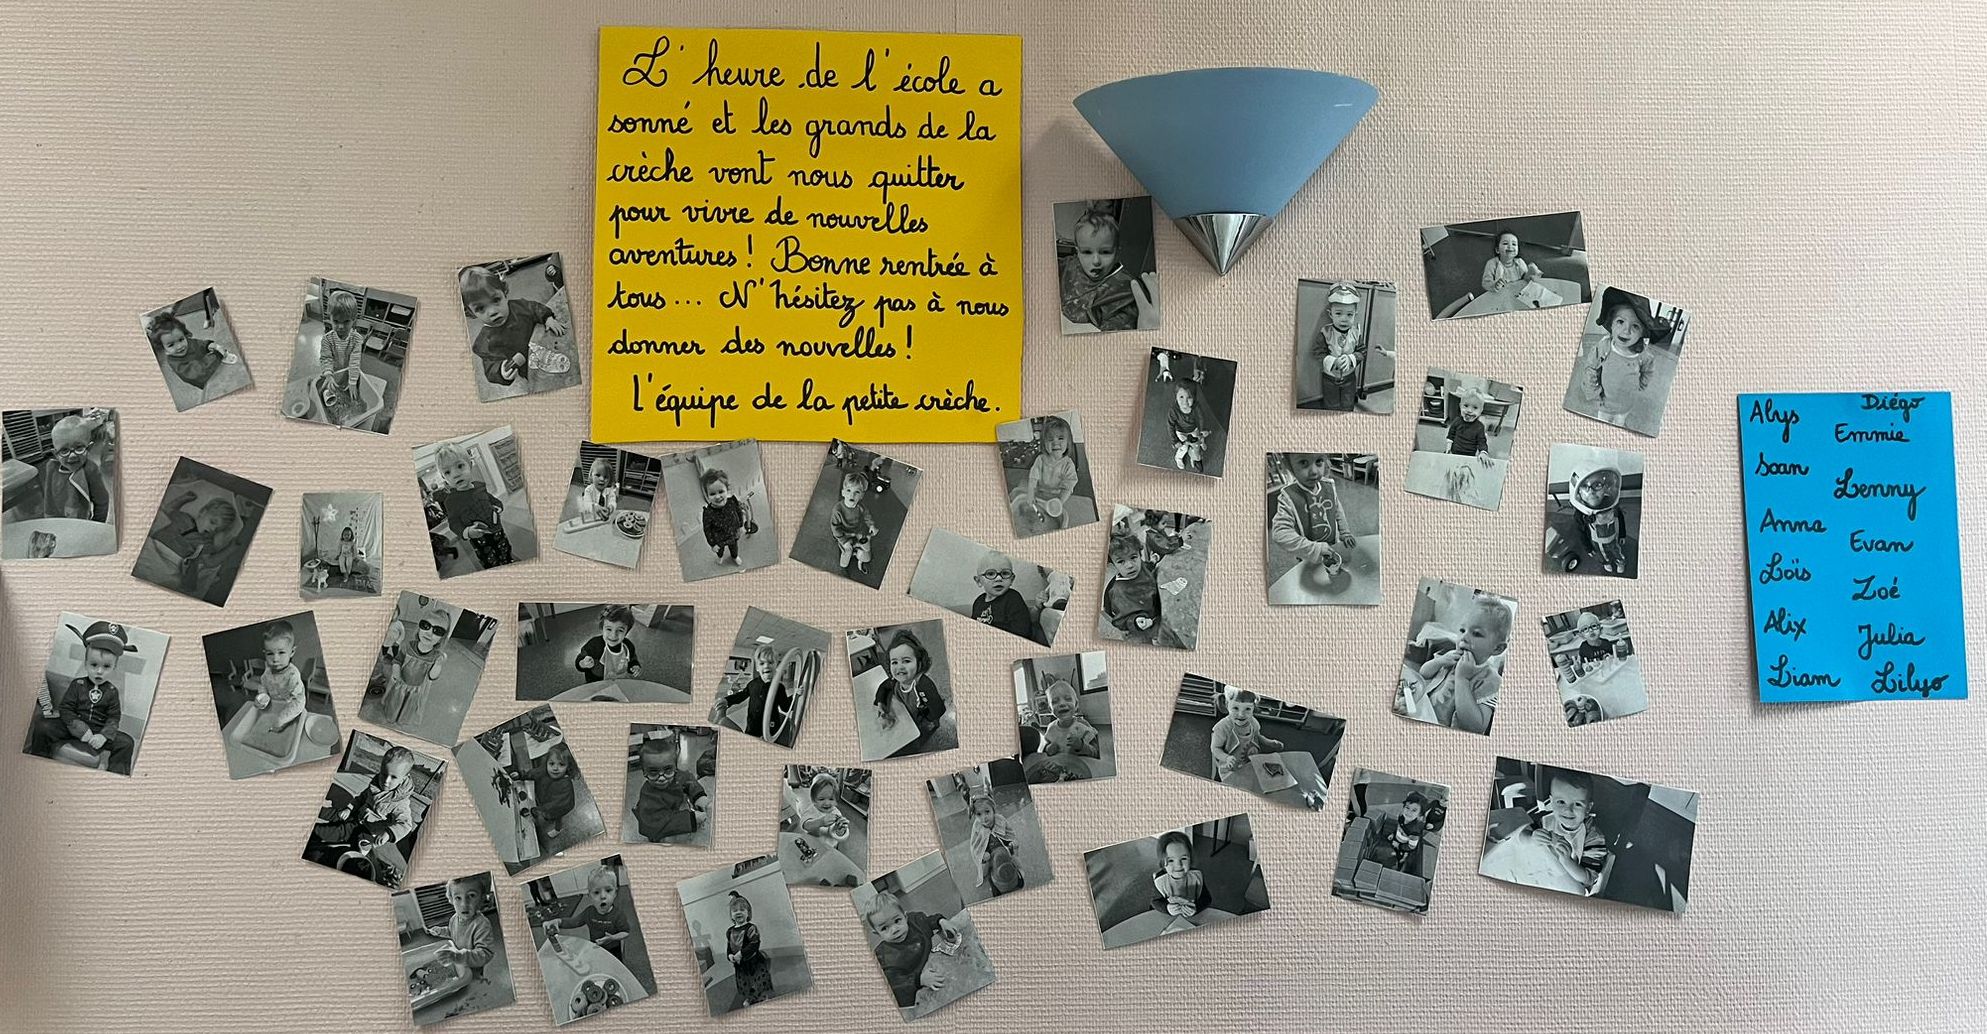 L'heure de l'école a
sonné et les grands de la
crèche vont nous quitter
pour vivre de nouvelles
aventures! Bonne rentrée à
tous... N'hésitez pas à nous
donner des nouvelles!
L'équipe de la petite crèche.
Alys Diégo
Emmie
Soan
Lenny
Anna
Evan
Loïs
Zoé
Alix
Julia
Liam Lilyo